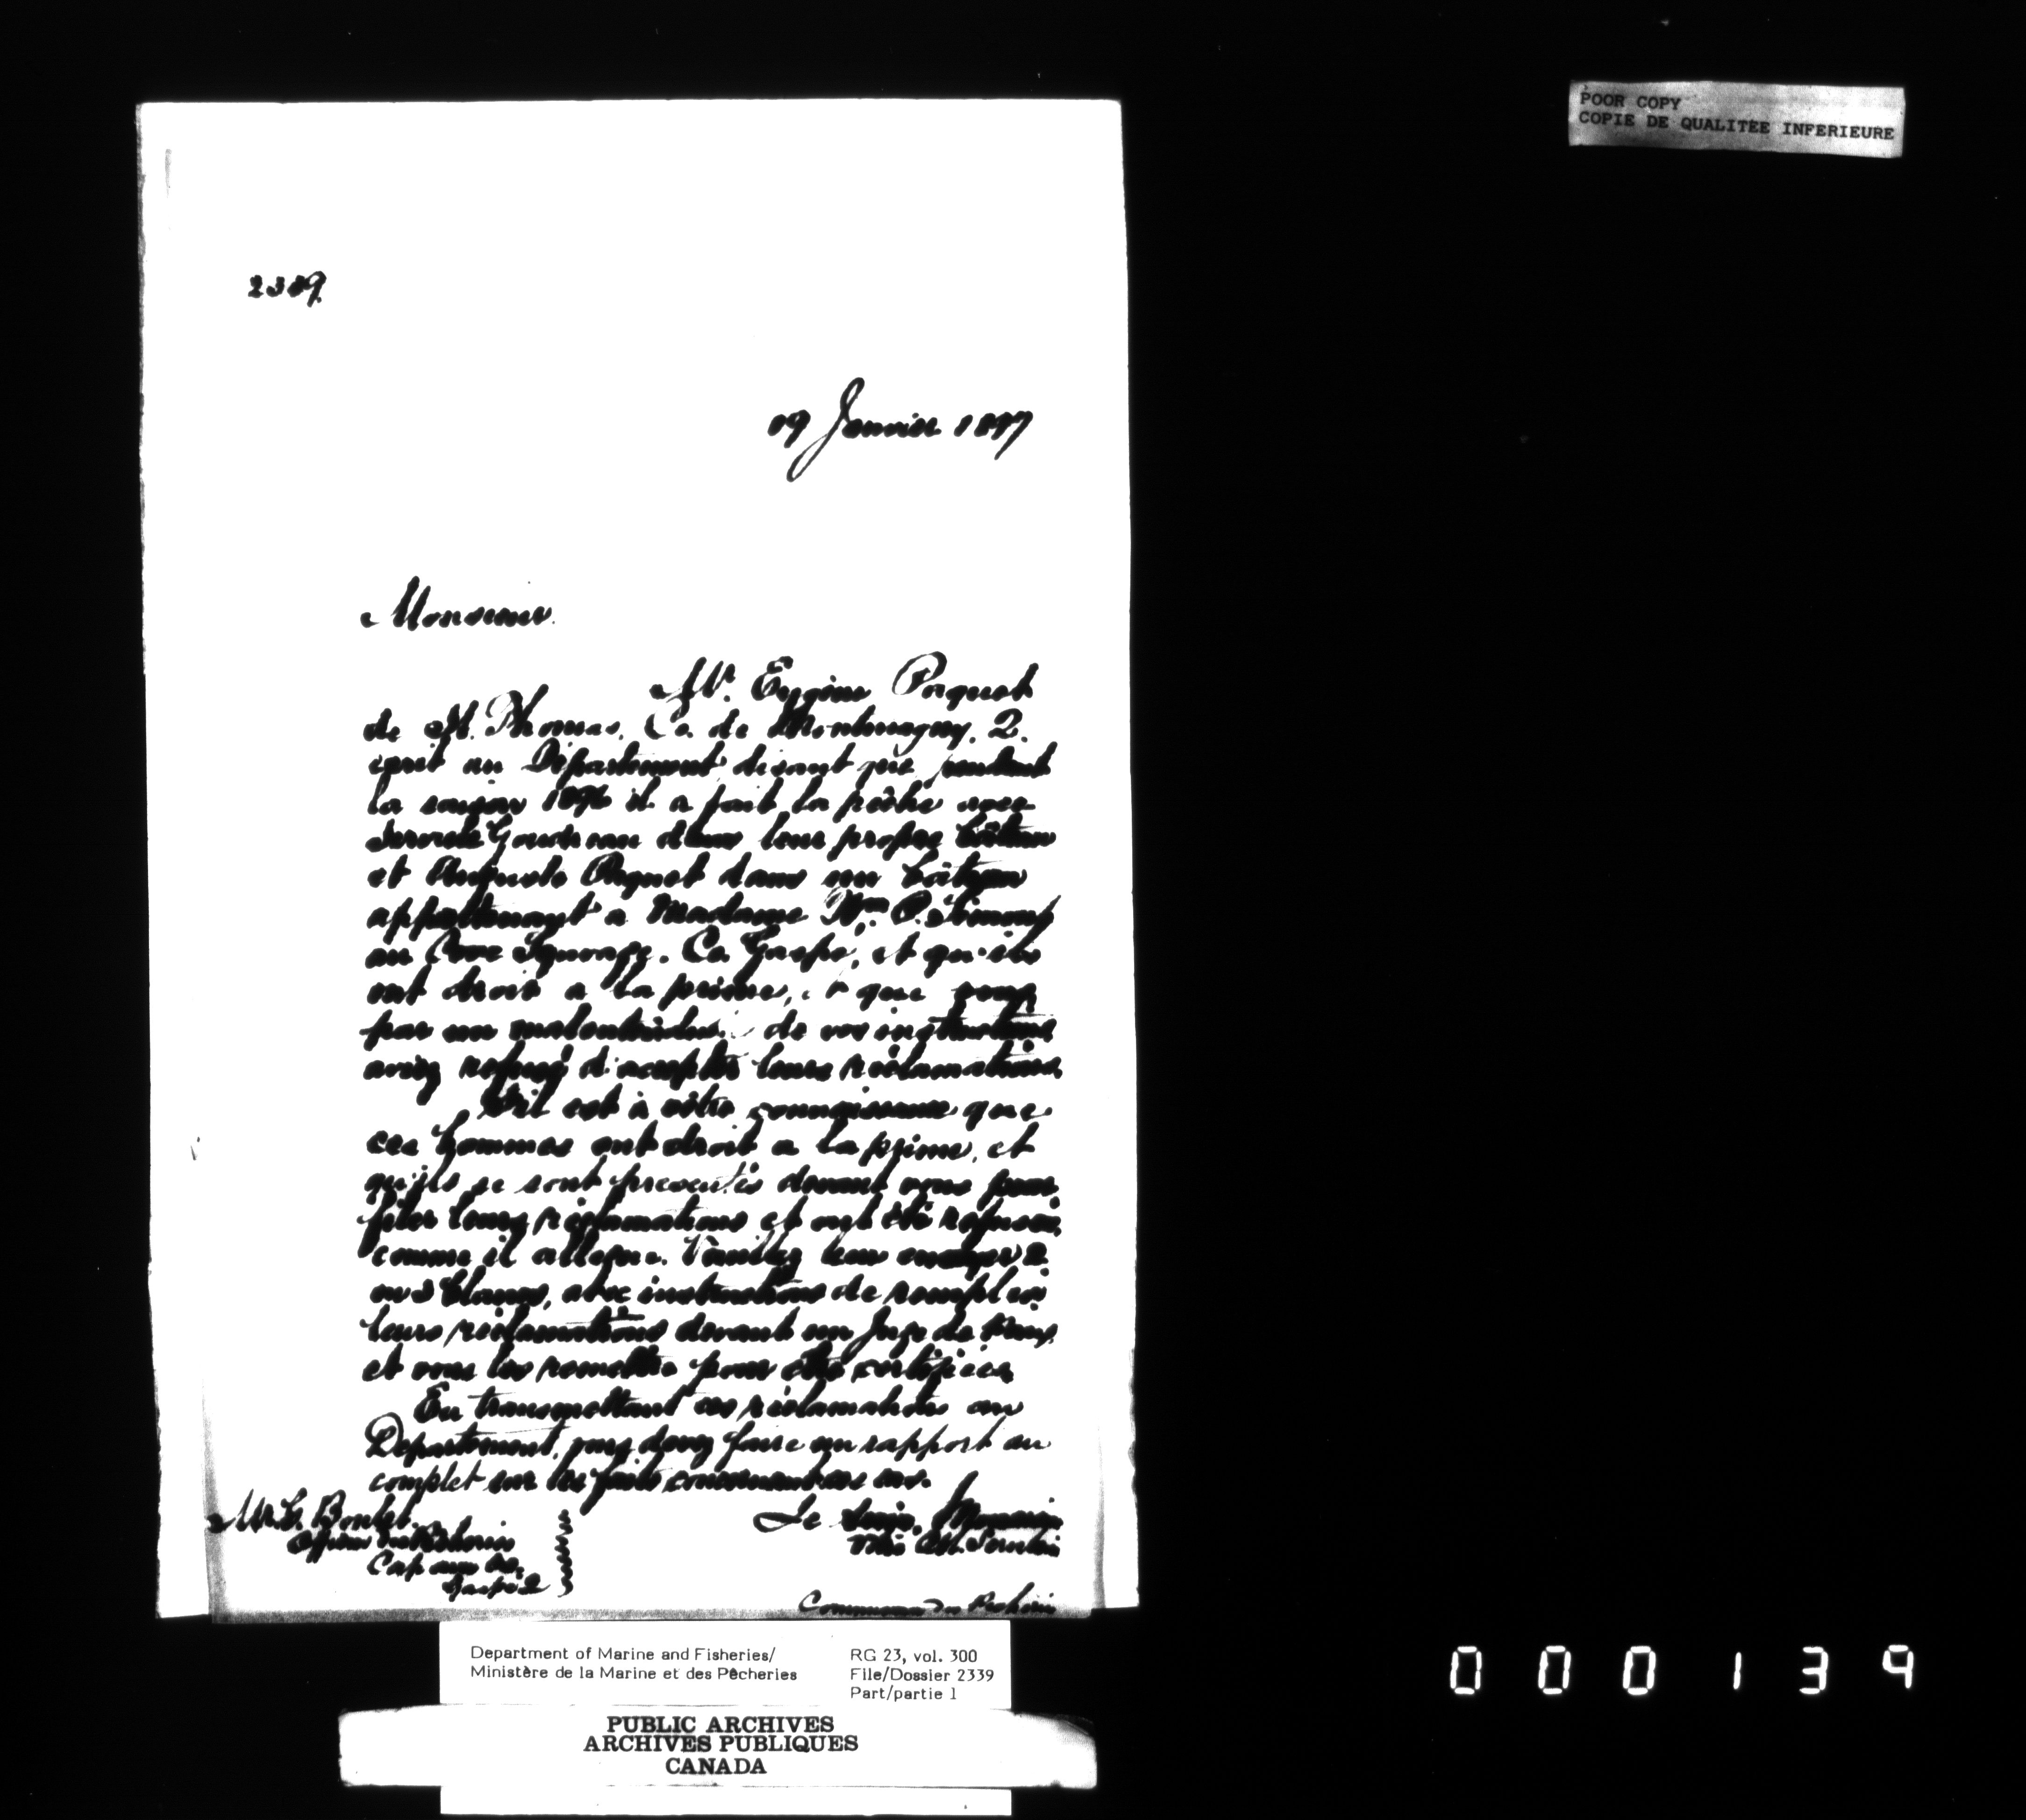 POOR COPY
COPIE DE QUALITEE INFERIEURE
2339
19 Janvier 1897
Monsieur.
Mr. Eugène Paquet
de St. Thomas, Co. de Montmagny. Q.
écrit au Département disant que pendant
la saison 1896 il a fait la pêche avec
Goudreau dans leur propre bâteau
et Auguste Paquet dans un bâteau
appartenant a Madame Wm. P. Simony
au Co. Gaspé, et qu'ils
ont droit a la prime, et que vous
par un malentendu de vos instructions
aviez refusé d'accepter leurs réclamations.
S'il est à votre connaissance que
ces hommes ont droit a la prime, et
qu'ils se sont presentés devant vous pour
filer leurs réclamations et ont été refusés,
comme il allegue. Veuillez leur envoyer 2
ou 3 blancs, avec instructions de remplir
leurs réclamations devant un Juge de Paix,
et vous les remettre pour être certifiées.
En transmettant ces réclamations au
Departement, vous devez faire un rapport au
complet sur les faits concernant ces cas.
Je suis, Monsieur
Votre Ob. Serviteur
Mr. Boulet
Officier des Pêcheries
Cap aux Os,
Gaspé Q
des Pêcheries
Department of Marine and Fisheries/
Ministère de la Marine et des Pêcheries
RG 23, vol. 300
File/Dossier 2339
Part/partie 1
PUBLIC ARCHIVES
ARCHIVES PUBLIQUES
CANADA
000139